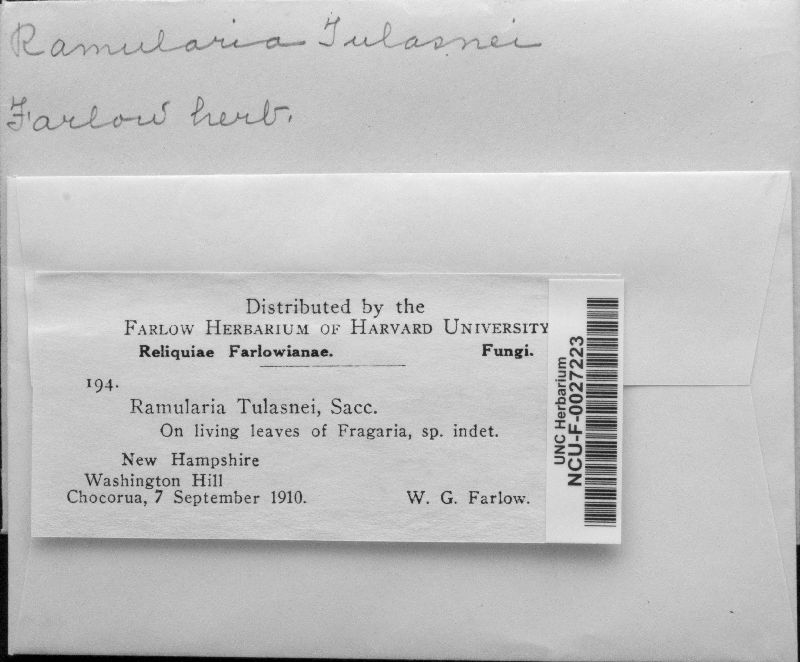 Ramularia Tulasnei
Farlow herb.
Distributed by the
FARLOW HERBARIUM OF HARVARD UNIVERSITY
Reliquiae Farlowianae. Fungi.
194.
Ramularia Tulasnei, Sacc.
On living leaves of Fragaria, sp. indet.
New Hampshire
Washington Hill
Chocorua, 7 September 1910. W. G. Farlow.
UNC Herbarium
NCU-F-0027223